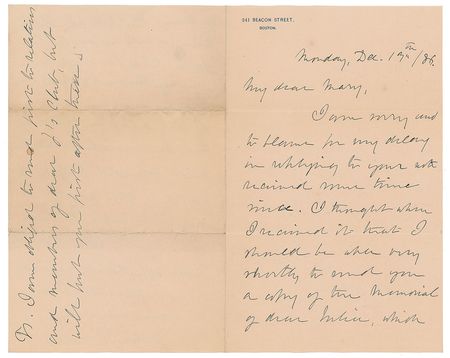 241 BEACON STREET,
BOSTON.
Monday, Dec. 19th /86.
My dear Mary,
I am sorry and
to blame for my delay
in replying to your note
received some time
since. I thought when
I received it that I
should be able very
shortly to send you
a copy of the Memorial
of dear Julia, which
Ps. I am obliged to send first to relatives
and members of dear J's Club, but
will put you first after these.